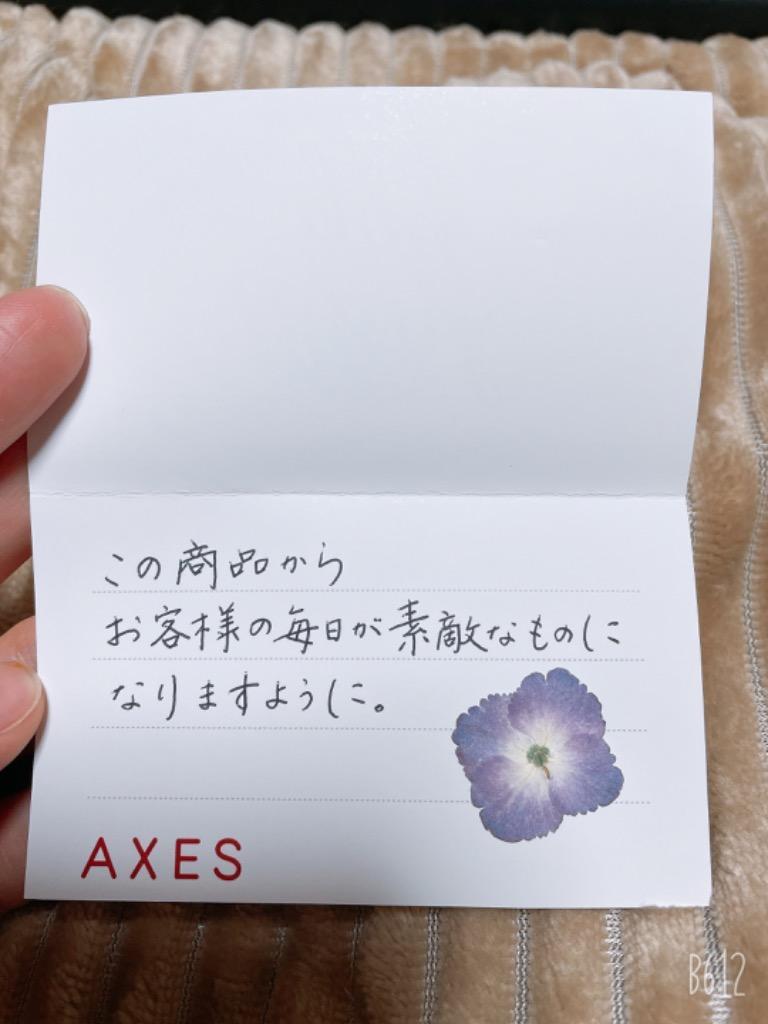 この商品から
お客様の毎日が素敵なものに
なりますように。
AXES
B612